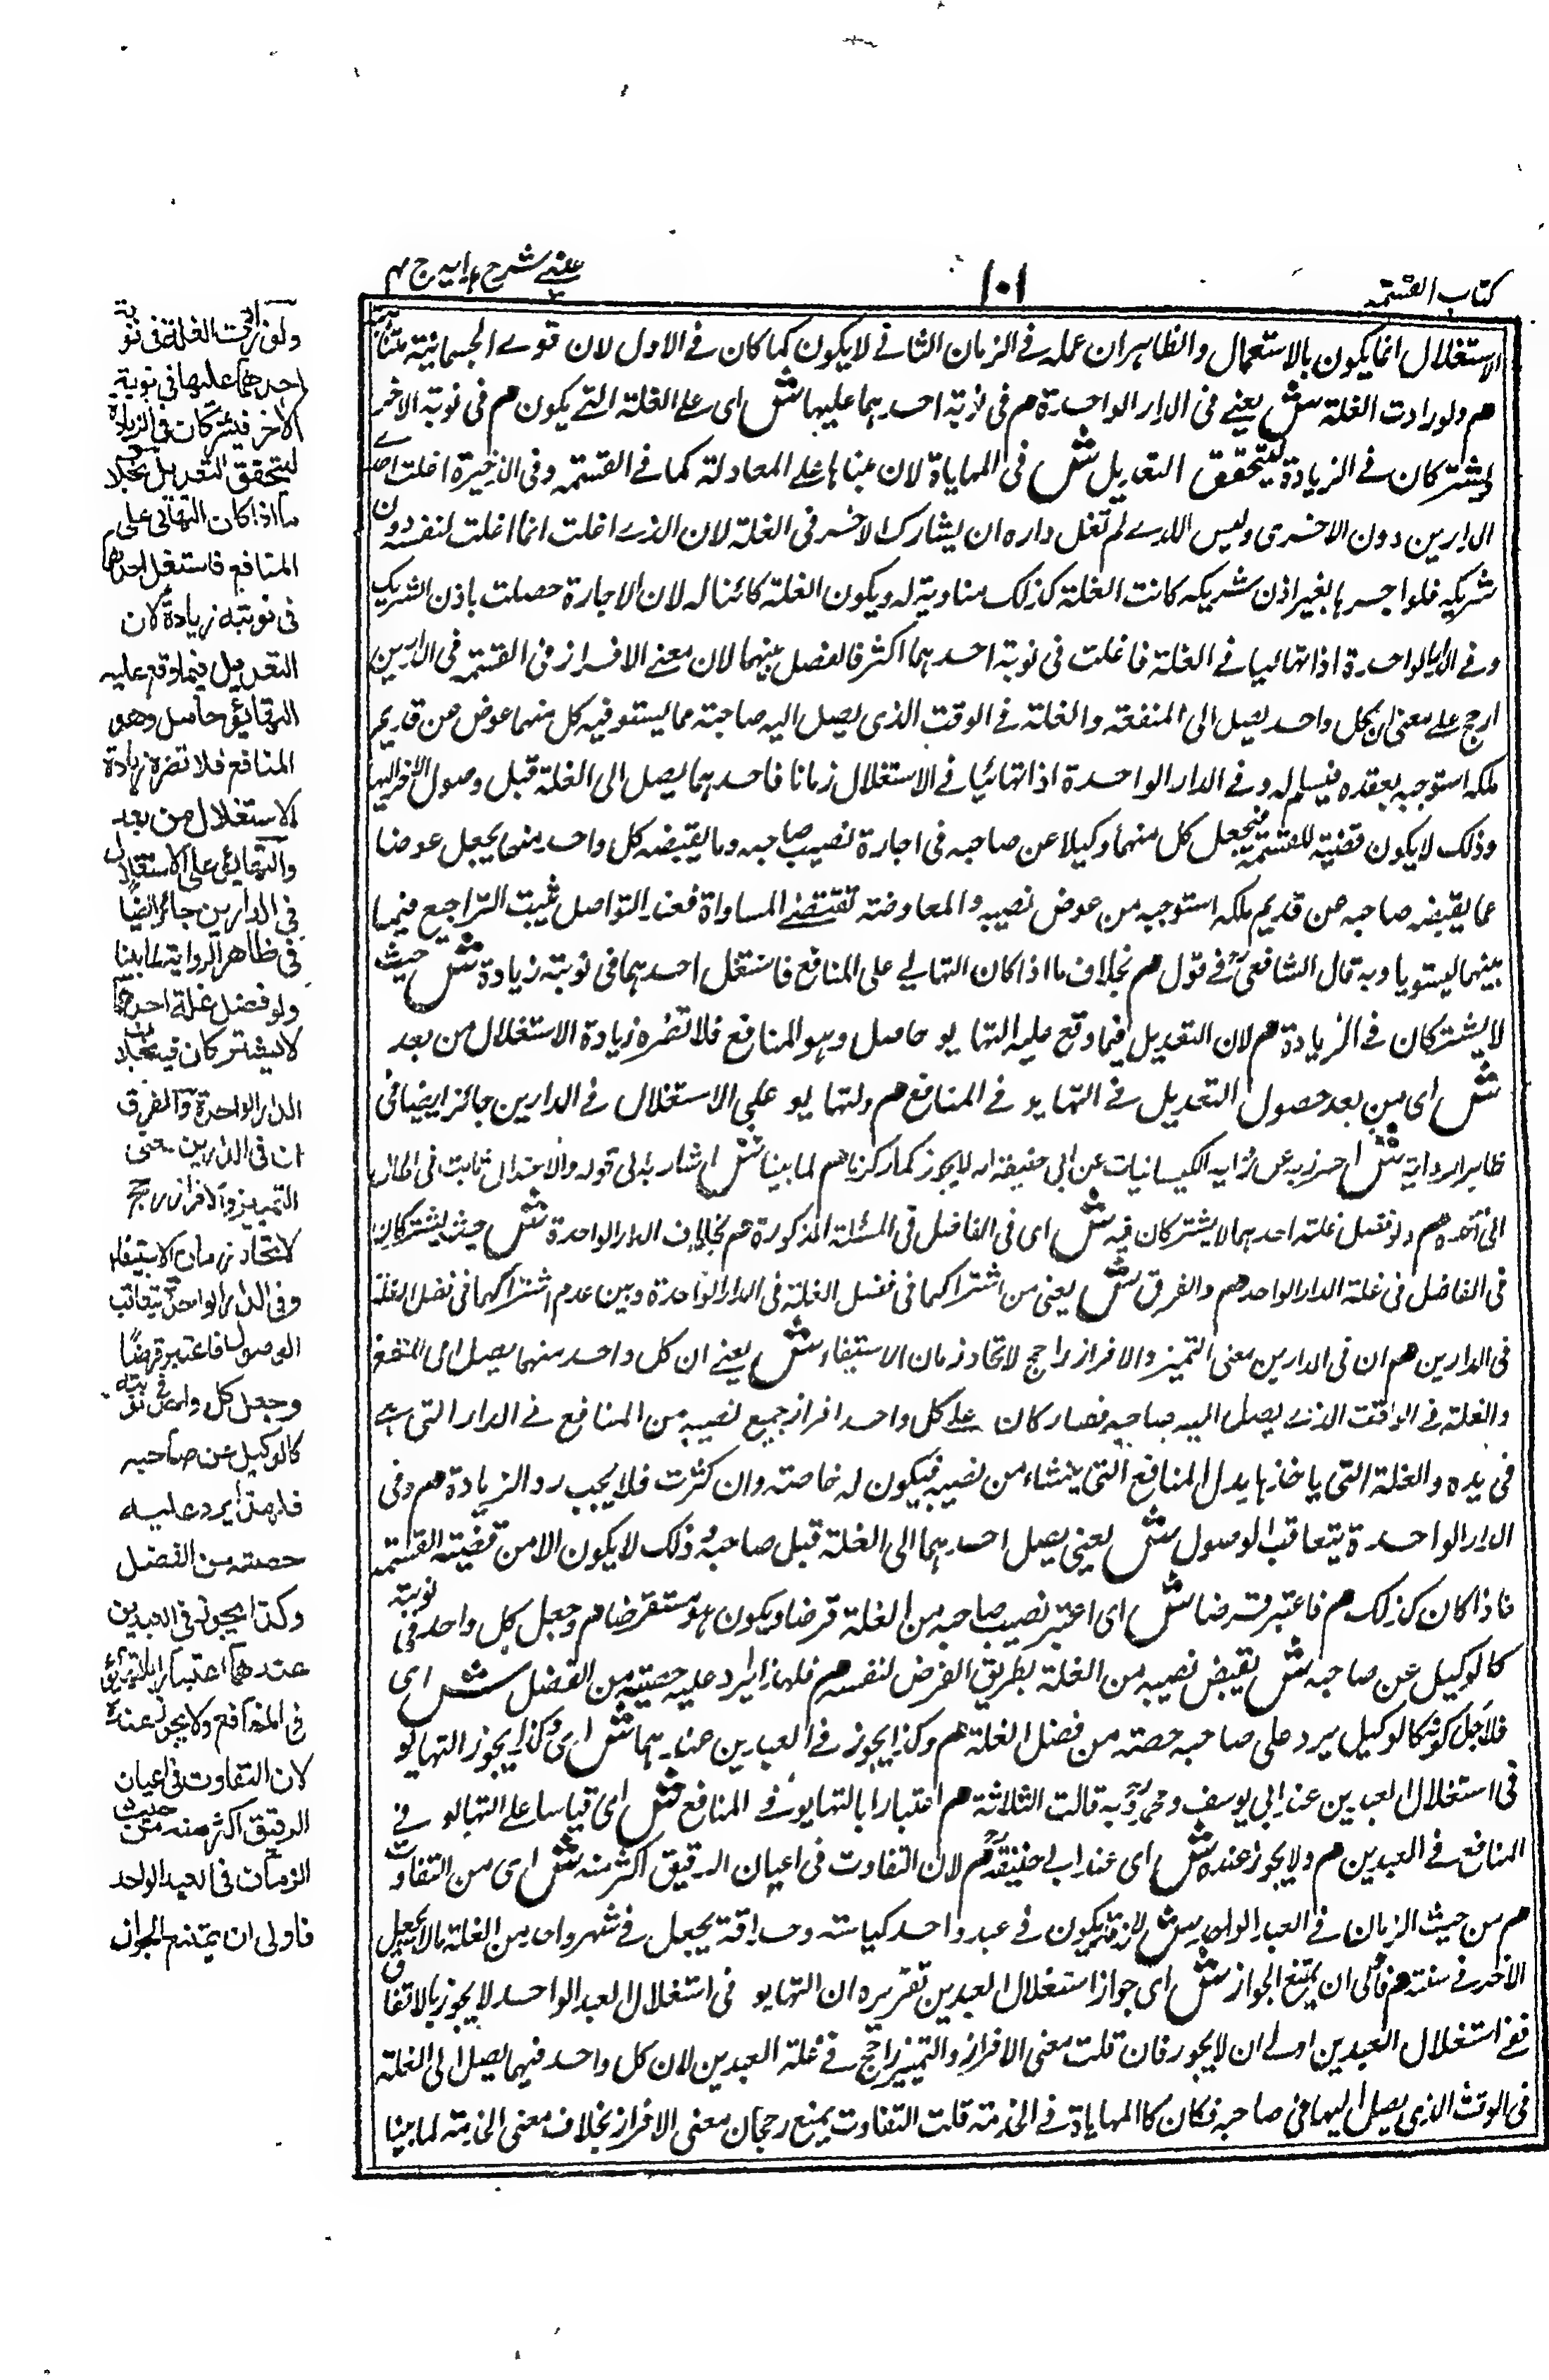 كتاب القسمة
١٠١
عيني شرح هدايه ج ٤
الاستغلال انما يكون بالاستعمال والظاهر ان عمله في الزمان الثاني لا يكون كما كان في الاول لان قوى الجسمانية متناهية
هم ولو زادت الغلة ش يعني في الدار الواحدة هم في نوبة احدهما عليها ش اى على الغلة التي يكون هم في نوبة الآخر
يشتركان في الزيادة ليتحقق التعديل ش في المهاياة لان مبناها على المعادلة كما في القسمة وفي الذخيرة اغلت احدى
الدارين دون الاخرى وليس للذي لم تغل داره ان يشارك الآخر في الغلة لان الذي اغلت انما اغلت لنفسه دون
شريكه فلو اجرها بغير اذن شريكه كانت الغلة كذلك مناوبة له ويكون الغلة كائنا له لان الاجارة حصلت باذن الشريك
وفي الدار الواحدة اذا تهائيا في الغلة فاغلت في نوبة احدهما اكثر فالفضل بينهما لان معنى الافراز في القسمة في الدارين
ارجح على معنى ان كل واحد يصل الى المنفعة والغلة في الوقت الذى يصل اليه صاحبه مما يستوفيه كل منهما عوض عن قديم
ملكه استوجبه بعقده فيسلم له وفي الدار الواحدة اذا تهائيا في الاستغلال زمانا فاحدهما يصل الى الغلة قبل وصول الآخر اليها
وذلك لا يكون قضية للقسمة فيجعل كل منهما وكيلا عن صاحبه في اجارة نصيب صاحبه وما يقبضه كل واحد منهما يجعل عوضا
عما يقبضه صاحبه عن قديم ملكه استوجبه من عوض نصيبه والمعاوضة تقتضي المساواة فعند التواصل يثبت التراجع فيما
بينهما ليستويا وبه قال الشافعي في قول هم بخلاف ما اذا كان التهايؤ على المنافع فاستغل احدهما في نوبته زيادة ش حيث
لا يشتركان في الزيادة هم لان التعديل فيما وقع عليه التهايو حاصل وهو المنافع فلا تضره زيادة الاستغلال من بعد
ش اى من بعد حصول التعديل في التهايو في المنافع هم والتهايو على الاستغلال في الدارين جائز ايضا في
ظاهر الرواية ش احترز به عن رواية الكيسانيات عن ابي حنيفة انه لا يجوز كما ذكرنا هم لما بينا ش اشار به الى قوله والاعتدال ثابت في الحال
الى آخره هم ولو فضل غلة احدهما لا يشتركان فيه ش اى في الفاضل في المسئلة المذكورة هم بخلاف الدار الواحدة ش حيث يشتركان
في الفاضل في غلة الدار الواحد هم والفرق ش يعني من اشتراكهما في فضل الغلة في الدار الواحدة وبين عدم اشتراكهما في فضل الغلة
في الدارين هم ان في الدارين معنى التميز والافراز راجح لاتحاد زمان الاستيفاء ش يعني ان كل واحد منهما يصل الى المنفعة
والغلة في الوقت الذي يصل اليه صاحبه فصار كان على كل واحد افراز جميع نصيبه من المنافع في الدار التى هى
في يده والغلة التى ياخذها بدل المنافع التى ينشاء من نصيبه فيكون له خاصة وان كثرت فلا يجب رد الزيادة هم وفى
الدار الواحدة يتعاقب الوصول ش يعني يصل احدهما الى الغلة قبل صاحبه وذلك لا يكون الا من قضية القسمة
فاذا كان كذلك هم فاعتبر قرضا ش اى اعتبر نصيب صاحبه من الغلة قرضا ويكون هو مستقرضا هم وجعل كل واحد في نوبته
كالوكيل عن صاحبه ش يقبض نصيبه من الغلة بطريق القرض لنفسه هم فلهذا يرد عليه حصته من الفضل ش اى
فلاجل كونه كالوكيل يرد على صاحبه حصته من فضل الغلة هم وكذا يجوز في العبدين عندهما ش اى وكذا يجوز التهايو
في استغلال العبدين عند ابي يوسف ومحمد وبه قالت الثلاثة هم اعتبارا بالتهايو في المنافع ش اى قياسا على التهايو في
المنافع في العبدين هم ولا يجوز عنده ش اى عند ابي حنيفة هم لان التفاوت في اعيان الرقيق اكثر منه ش اى من التفاوت
هم من حيث الزمان في العبد الواحد ش لانه قد يكون في عبد واحد كياسة وحذاقة يجعل في شهر واحد من الغلة ما لا يجعل
الآخر في سنة هم فاولى ان يمتنع الجواز ش اى جواز استغلال العبدين تقريره ان التهايو في استغلال العبد الواحد لا يجوز بالاتفاق
ففي استغلال العبدين اولى ان لا يجوز فان قلت معنى الافراز والتميز راجح في غلة العبدين لان كل واحد فيهما يصل الى الغلة
في الوقت الذي يصل اليها في صاحبه فكان كالمهاياة في الخدمة قلت التفاوت يمنع رجحان معنى الافراز بخلاف معنى الخدمة لما بينا
ولو زادت الغلة في نوبة
احدهما عليها في نوبة
الآخر فيشتركان في الزيادة
ليتحقق التعديل بخلاف
ما اذا كان التهائى على
المنافع فاستغل احدهما
في نوبته زيادة لان
التعديل فيما وقع عليه
التهايؤ حاصل وهو
المنافع فلا تضره زيادة
الاستغلال من بعد
والتهايؤ على الاستغلال
في الدارين جائز ايضًا
في ظاهر الرواية لما بينا
ولو فضل غلة احدهما
لا يشتركان فيه بخلاف
الدار الواحدة والفرق
ان في الدارين معنى
التمييز والافراز راجح
لاتحاد زمان الاستيفاء
وفي الدار الواحدة يتعاقب
الوصول فاعتبر قرضًا
وجعل كل واحد في نوبته
كالوكيل عن صاحبه
فلهذا يرد عليه
حصته من الفضل
وكذا يجوز في العبدين
عندهما اعتبارا بالتهايؤ
في المنافع ولا يجوز عنده
لان التفاوت في اعيان
الرقيق اكثر منه من حيث
الزمان في العبد الواحد
فاولى ان يمتنع الجواز